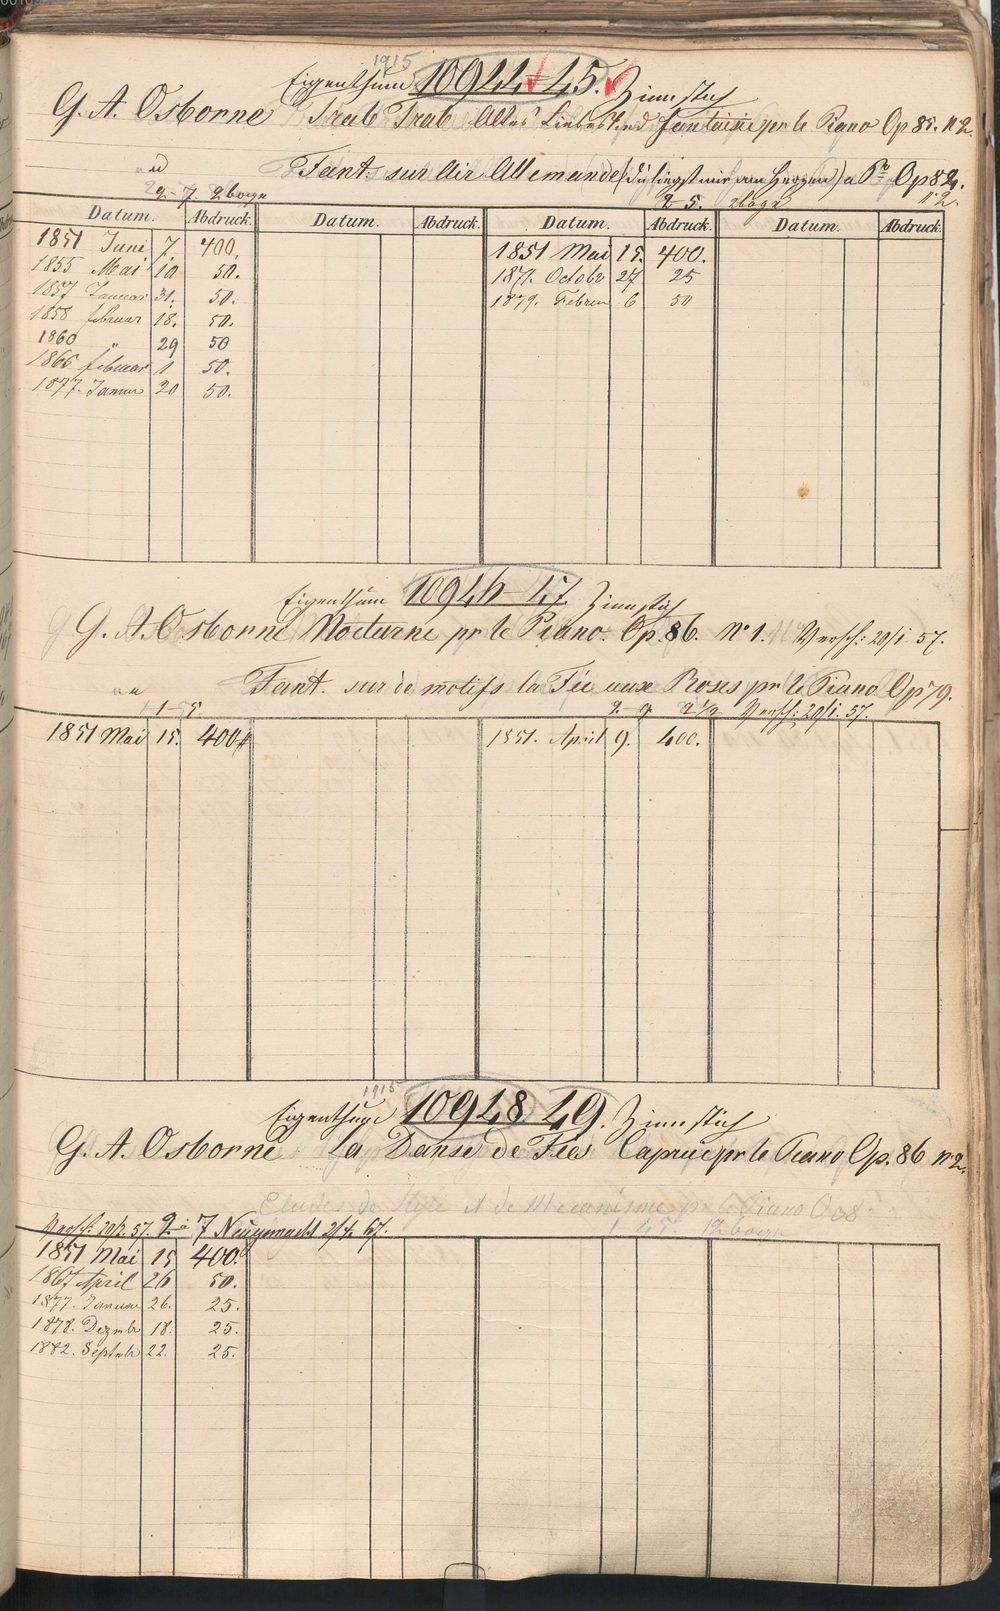 1915
Eigenthum 10944-45. Zinnstich
G. A. Osborne Trab Trab Altes Liebeslied Fantaisie pr le Piano Op 85. N 2
Fant. sur Air Allemande (du liegst mir am Herzen) a Pte Op 82.
2-7. 2 bogn
2-5. 2 bogn
N: 2.
Datum. Abdruck. Datum. Abdruck. Datum. Abdruck. Datum. Abdruck.
1851 Juni 7. 400. 1851 Mai 15. 400.
1855 Mai 10 50. 1871. Octobr 27 25
1857 Januar 31. 50. 1879. Februr 6 50
1858 februar 18. 50.
1860 " 29 50
1866 februar 1 50.
1877. Januar 20 50.
Eigenthum 10946-47. Zinnstich
G. A. Osborne Nocturne pr le Piano. Op. 86. No 1. Versch: 20/1. 57.
Fant. sur de motifs la Fée aux Roses pr le Piano Op 79.
Versch: 20/1. 57.
1851 Mai 15. 400 1851. April 9. 400.
1915
Eigenthum 10948.49. Zinnstich
G. A. Osborne La Danse de Fées Caprice pr le Piano Op. 86 N 2.
Etudes de Style et de Mecanisme pr le Piano
Versch: 20/1. 57. 2-7 Neugemacht 2/4 67.
1851 Mai 15 400.
1867 April 26 50.
1877. Januar 26. 25.
1878. Dezmbr 18. 25.
1882. Septmbr 22. 25.